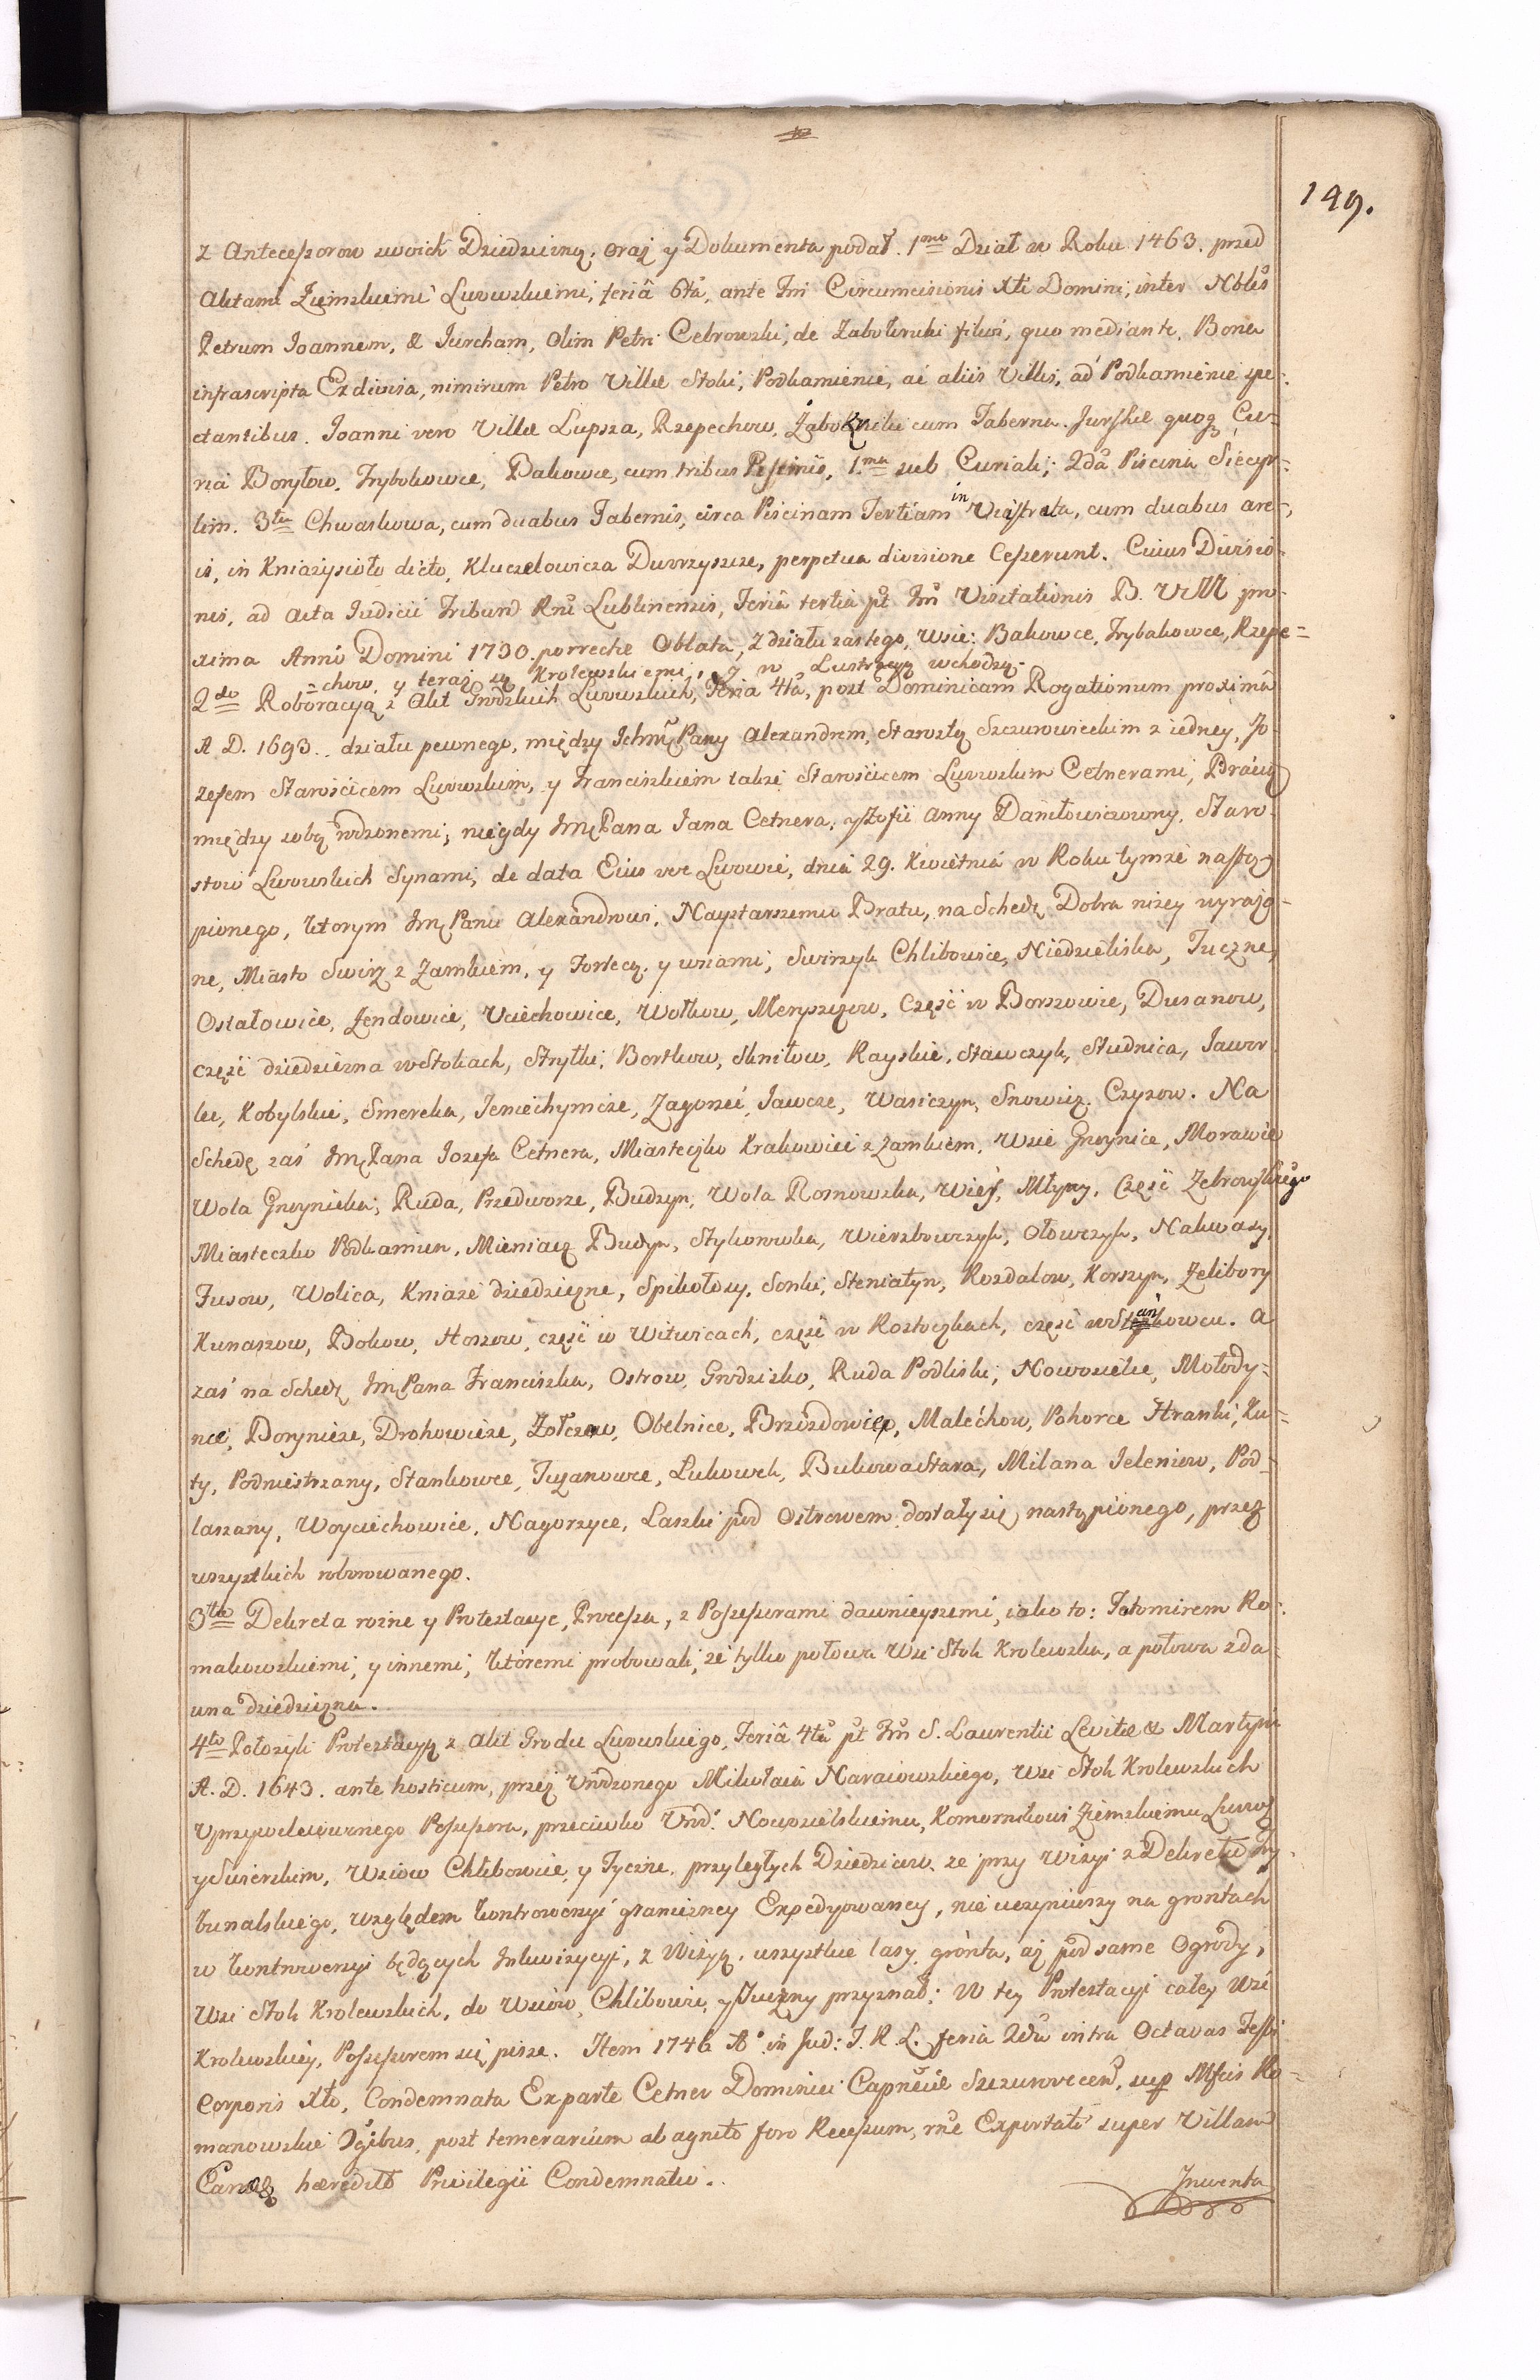 149.
z Antecessorow swoich Dziedziczną, oraz y Dokumenta podał. 1mo Dział w Roku 1463. przed
Aktami Ziemskiemi Lwowskiemi, feriâ 6tâ, ante Fm Circumcisionis Xti Domini, inter Nbles
Petrum Joannem, & Jurcham, olim Petri Cebrowski, de Zabokruki filios, quo mediante, Bona
infrascripta Ex divisa, nimirum Petro Villæ Stoki, Podkamienie, ac aliis Villis, ad Podkamienie spe=
ctantibus. Joanni vero Villæ Lupsza, Rzepechow, Zabokruki cum Taberna. Jurshæ quoq Cu=
ria Boryłow, Trybokowce, Bakowce, cum tribus Piscinis, 1ma sub Curiali, 2da Piscina Siecyr=
kim. 3tia Chwaskowa, cum duabus Tabernis, circa Piscinam Tertiam in Via strata, cum duabus are=
is, in Kniazysioło dicto, Kluczelowicza Dworzyszcze, perpetua divisione Cesserunt. Cuius Divisio=
nis, ad Acta Judicii Tribunal Rni Lublinensis, Feriâ tertia pt Fm Visitationis B. V. M pro=
xima Anni Domini 1730. porrectæ Oblata, z działu zastego, wsie: Bakowce, Trybokowce, Rzepe=
=chow, y teraz są Krolewskiemi, y w Lustracyą wchodzą.
2do Roboracyą z Akt Grodzkich Lwowskich, Feriâ 4tâ, post Dominicam Rogationum proximâ
A. D. 1693. działu pewnego, między Ichmć Pany Alexandrem, Starostą Szczurowieckim z iedney, Jo=
zefem Starościcem Lwowskim, y Franciszkiem także Starościcem Lwowskim Cetnerami, Bráćią
między sobą rodzonemi, niegdy Jmć Pana Jana Cetnera, y Zofii Anny Daniłowiczowny, Staro=
stow Lwowskich Synami, de data Eius we Lwowie, dnia 29. Kwietnia w Roku tymże nastą=
pionego, ktorym Jmć Panu Alexandrowi, Naystarszemu Bratu, na Schedę Dobra niżey wyrażo=
ne, Miasto Swirz z Zamkiem, y Fortecą, y wsiami, Swirzyk Chlibowice, Niedzieliska, Tuczne,
Ostałowice, Zendowice, Uciechowice, Wołkow, Meryszczow, Część w Borszowie, Dusanow,
część dziedziczna w Stokach, Stryłki, Bortkow, Skniłow, Rayskie, Stawczyk, Studnica, Jawor
ki, Kobylskie, Smereka, Jeniechymcze, Zagorzeć, Jawcze, Wasiczyn, Snowicz. Czyzow. Na
Schedę zaś Jmć Pana Jozefa Cetnera, Miasteczko Krakowiec z Zamkiem, Wsie Gnoynice, Morawice
Wola Gnoynicka, Ruda, Przedworze, Budzyn, Wola Rosnowska, Wieś, Młyny, Część Zebrowskiego
Miasteczko Podkamien, Mieniacz Budyn, Stykorowka, Wierzbowczyk, Ołowczyk, Nakwasy,
Jusow, Wolica, Kniaże dziedziczne, Spikołosy, Sonki, Steniatyn, Rozdalow, Korszyn, Zelibory
Kunaszow, Bokow, Hoszow, część w Witwicach, część w Roztoczkach, część w Stankowcu. A
zaś na Schedę Jmć Pana Franciszka, Ostrow, Grodzisko, Ruda Podliski, Nowosielce, Mołody=
nce, Borynicze, Drohowicze, Zołczow, Obelnice, Brzozdowice, Malechow, Pohorce Hranki, Ku=
ty, Podniestrzany, Stankowce, Juzanowce, Lukowek, Bukowa Stara, Milana Jeleniow, Pod=
laszany, Woyciechowice, Nagorzyce, Laszki pod Ostrowem dostały się, nastąpionego, przez
wszystkich roborowanego.
3tio Dekreta rożne y Protestacye, Processa, z Possessorami dawnieyszemi, iako to: Totomirem Ro=
makowskiemi, y innemi, ktôremi probowali, że tylko połowa Wsi Stok Krolewska, a połowa zda=
wna dziedziczna.
4to Położyli Protestacyą z Akt Grodu Lwowskiego, Feriâ 4tâ pt Fm S. Laurentii Levitæ & Martyris
A. D. 1643. ante hosticum, przez Urodzonego Mikołaia Naraiowskiego, Wsi Stok Krolewskich
Uprzywilejowanego Possessora, przeciwko Urod: Nowosielskiemu, Komornikowi Ziemskiemu Lwow
y Swierskim, Wsiow Chlibowic, y Tyczne, przyległych Dziedzicow, ze przy Wizyi z Dekretu Try=
bunalskiego, względem kontrowersyi graniczney Expedyowaney, nie uczyniwszy na grontach
w kontrowersyi będących Inkwizycyi, z Wizyą, wszystkie lasy, grónta, aż pôd same Ogrody,
Wsi Stok Krolewskich, do Wsiow, Chlibowic, y Tuczny przyznał: W tey Protestacyi całey Wsi
Krolewskiey, Possessorem się pisze. Item 1746 Ao in Jud: T. R. L. feria 2da intra Octavas Festi
Corporis Xti, Condemnata Ex parte Cetner Dominici Capnei Szczurovecen, sup Mfcis Ro=
manowskie Ogibus, post temerarium ab agnito foro Recessum, rne Exportati super Villam
hæredité Privilegii Condemnatis.
Inwenta